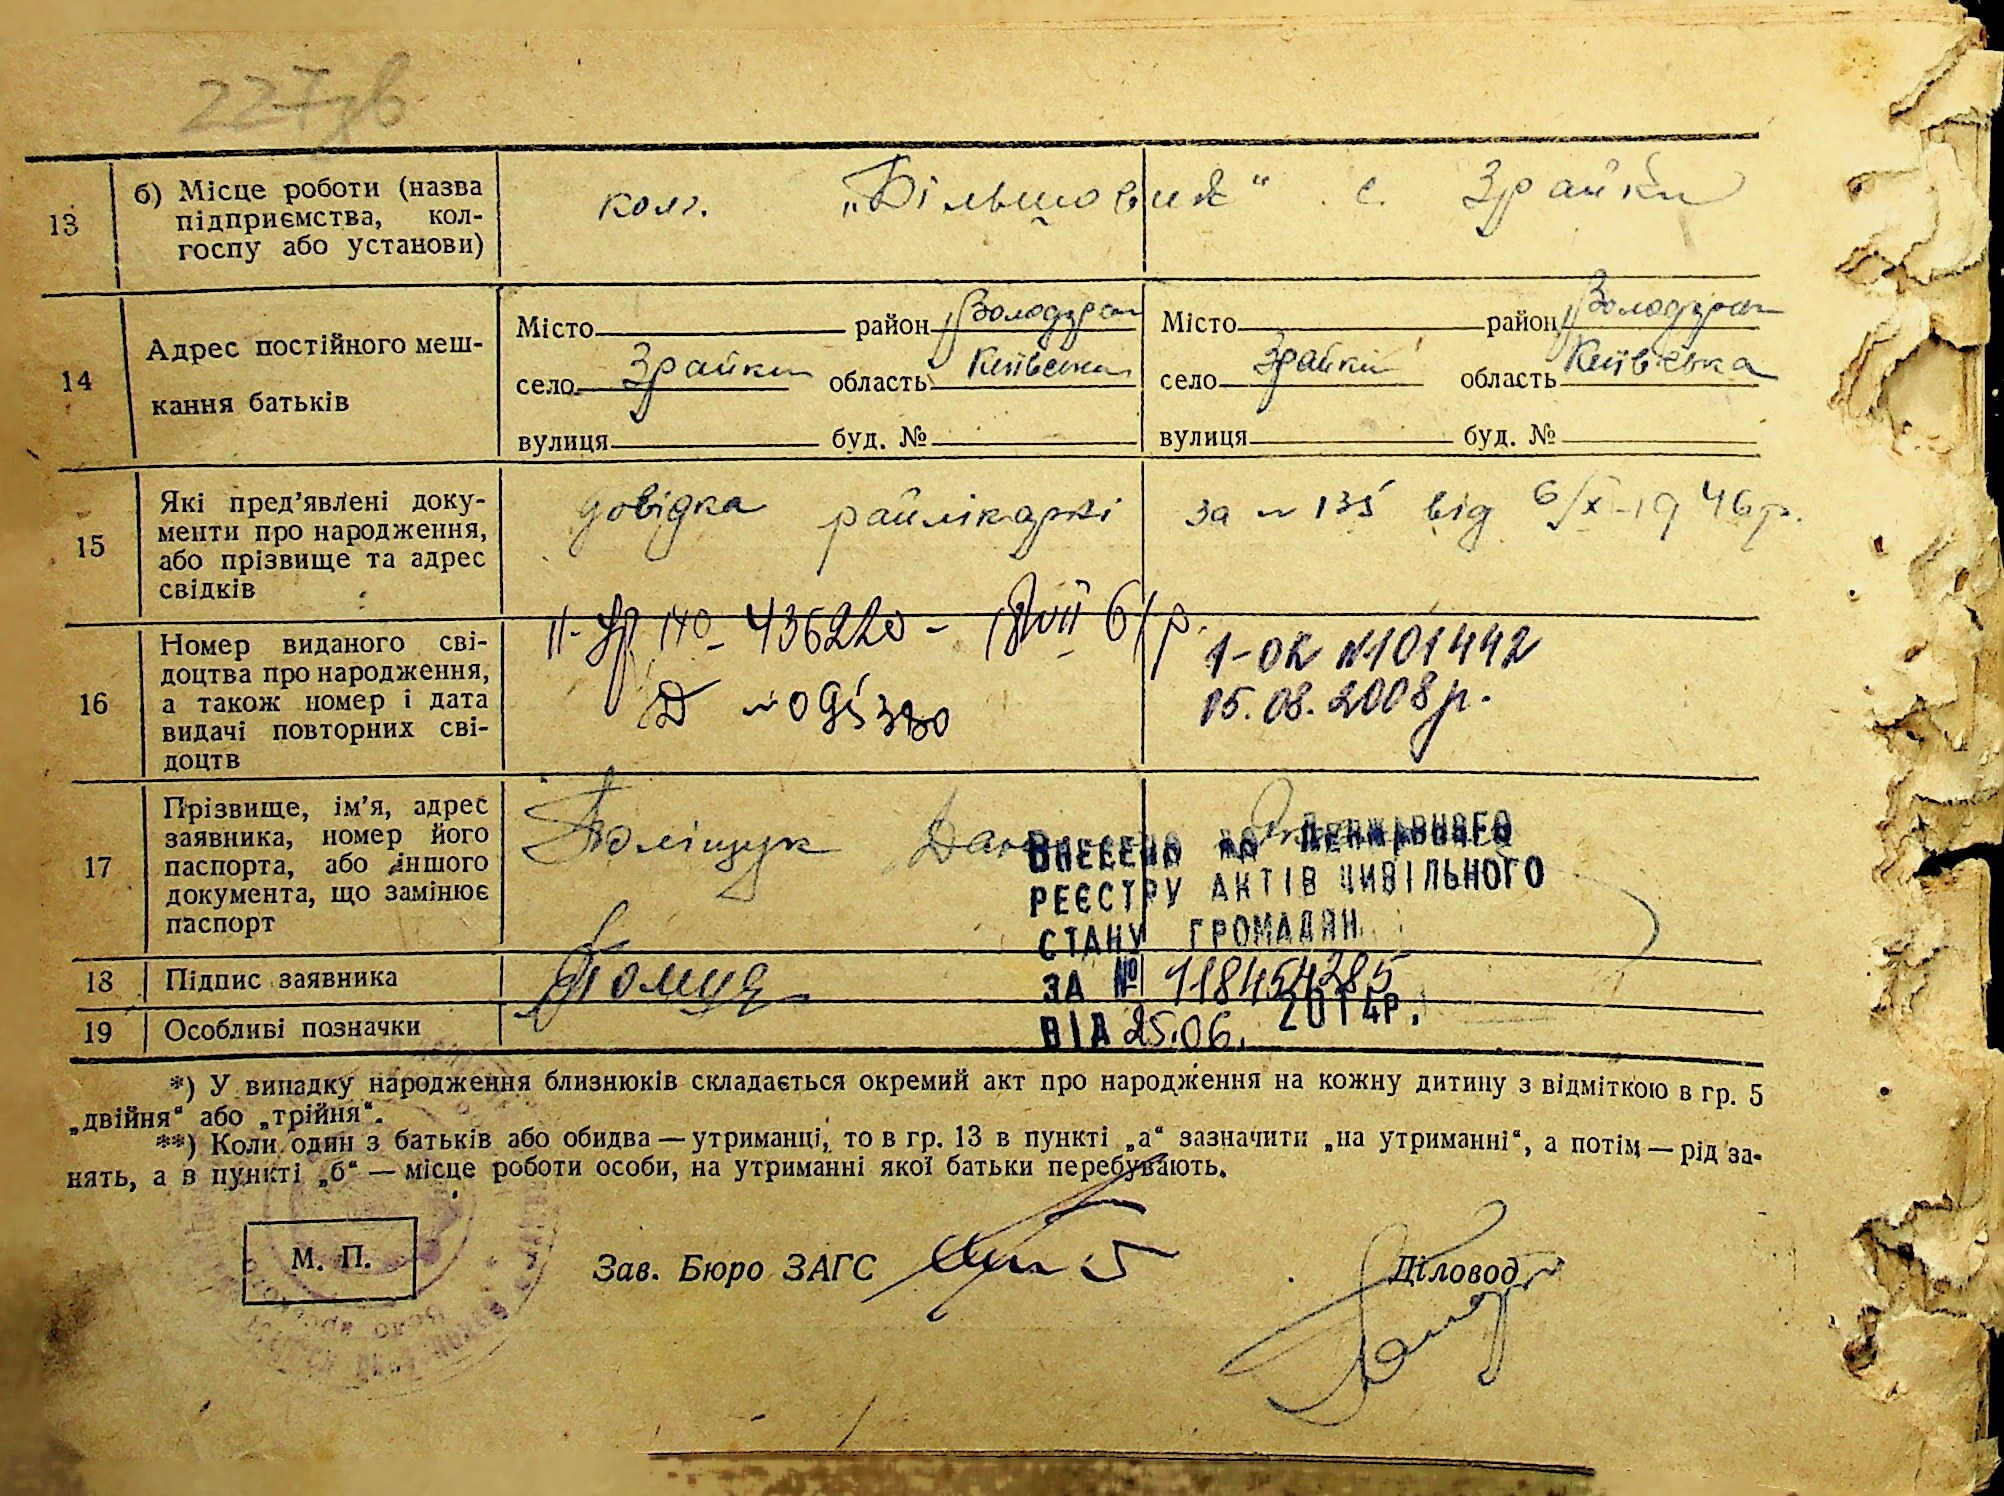 227зв
13
б) Місце роботи (назва
підприємства, кол-
госпу або установи)
колг. „Більшовик“ с. Зрайки
14
Адрес постійного меш-
кання батьків
Місто район Володарськ
село Зрайки область Київська
вулиця буд. №
Місто район Володарськ
село Зрайки область Київська
вулиця буд. №
15
Які пред’явлені доку-
менти про народження,
або прізвище та адрес
свідків
довідка райлікарні за № 135 від 6/X-1946р.
16
Номер виданого сві-
доцтва про народження,
а також номер і дата
видачі повторних сві-
доцтв
436220
1-ОК №101442
15.08.2008р.
17
Прізвище, ім’я, адрес
заявника, номер його
паспорта, або іншого
документа, що замінює
паспорт
Поліщук
Внесено до Державного
реєстру актів цивільного
стану громадян
за № 118454285
від 25.06. 2014р.
18
Підпис заявника
19
Особливі позначки
*) У випадку народження близнюків складається окремий акт про народження на кожну дитину з відміткою в гр. 5
„двійня“ або „трійня“.
**) Коли один з батьків або обидва — утриманці, то в гр. 13 в пункті „а“ зазначити „на утриманні“, а потім — рід за-
нять, а в пункті „б“ — місце роботи особи, на утриманні якої батьки перебувають.
М. П.
Зав. Бюро ЗАГС
Діловод